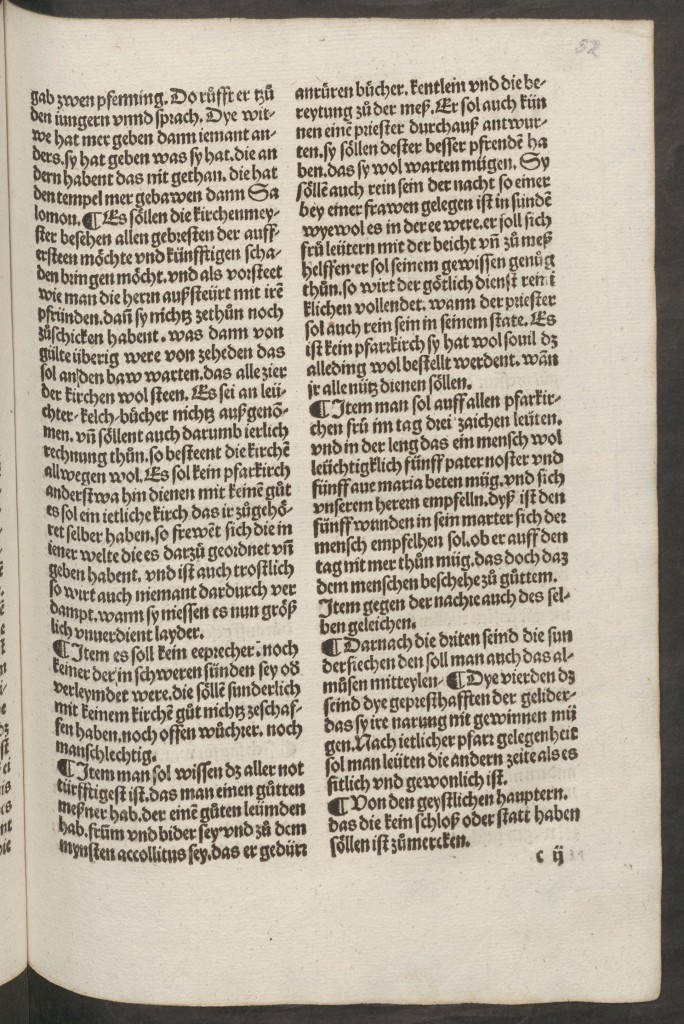 52
gab zwen pfenning. Do růfft er tzů
den iungern vnnd sprach. Dye wit-
we hat mer geben dann iemant an-
ders. sy hat geben was sy hat. die an
dern habent das nit gethan. die hat
den tempel mer gebawen dann Sa
lomon. ¶ Es söllen die kirchenmey-
ster besehen allen gebresten der auff-
ersteen möchte vnd künfftigen scha-
den bringen möcht. vnd als vorsteet
wie man die herrn aufsteürt mit irē
pfründen. dañ sy nichtz zethůn noch
zůschicken habent. was dann von
gülte überig were von zeheden das
sol an den baw warten. das alle zier
der kirchen wol steen. Es sei an leü-
chter. kelch. bücher nichtz außgenō-
men. vñ söllent auch darumb ierlich
rechnung thůn. so besteent die kirchē
allwegen wol. Es sol kein pfarkirch
anderstwa hin dienen mit keinē gůt
es sol ein ietliche kirch das ir zůgehö-
ret selber haben. so frewēt sich die in
iener welte die es darzů geordnet vñ
geben habent. vnd ist auch trostlich
so wirt auch niemant dardurch ver
dampt. wann sy niessen es nun größ
lich vnuerdient layder.
¶ Item es soll kein eeprecher. noch
keiner der in schweren sünden sey oď
verleymdet were. die söllē sunderlich
mit keinem kirchē gůt nichtz zeschaf-
fen haben. noch offen wůchrer. noch
manschlechtig.
¶ Item man sol wissen dz aller not
türfftigest ist. das man einen gůtten
meßner hab. der einē gůten leümden
hab. frům vnd bider sey vnd zů dem
mynsten accollitus sey. das er gedürr
anrüren bücher. kentlein vnd die be-
reytung zů der meß. Er sol auch kün
nen eine priester durchauß antwur-
ten. sy söllen dester besser pfrendē ha
ben. das sy wol warten mügen. Sy
söllē auch rein sein der nacht so einer
bey einer frawen gelegen ist in sundē
wyewol es in der ee were. er soll sich
frů leütern mit der beicht vñ zů meß
helffen. er sol seinem gewissen genůg
thůn. so wirt der götlich dienst reini
klichen vollendet. wann der priester
sol auch rein sein in seinem state. Es
ist kein pfarrkirch sy hat wol souil dz
alleding wol bestellt werdent. wān
jr alle nütz dienen söllen.
¶ Item man sol auff allen pfarkir-
chen frů im tag drei zaichen leüten.
vnd in der leng das ein mensch wol
leüchtigklich fünff pater noster vnd
fünff aue maria beten müg. vnd sich
vnserem herern empfelln. dyß ist den
fünff wunden in sein marter sich der
mensch empfelhen sol. ob er auff den
tag nit mer thůn müg. das doch daz
dem menschen beschehe zů gůttem.
Item gegen der nachte auch des sel-
ben geleichen.
¶ Darnach die driten seind die sun
dersiechen den soll man auch das al-
můsen mitteylen. ¶ Dye vierden dz
seind dye gepresthafften der gelider.
das sy ire narung nit gewinnen mü
gen. Nach ietlicher pfarr gelegenheit
sol man leüten die andern zeite als es
sitlich vnd gewonlich ist.
¶ Von den geystlichen hauptern.
das die kein schloß oder statt haben
söllen ist zůmercken.
c ij